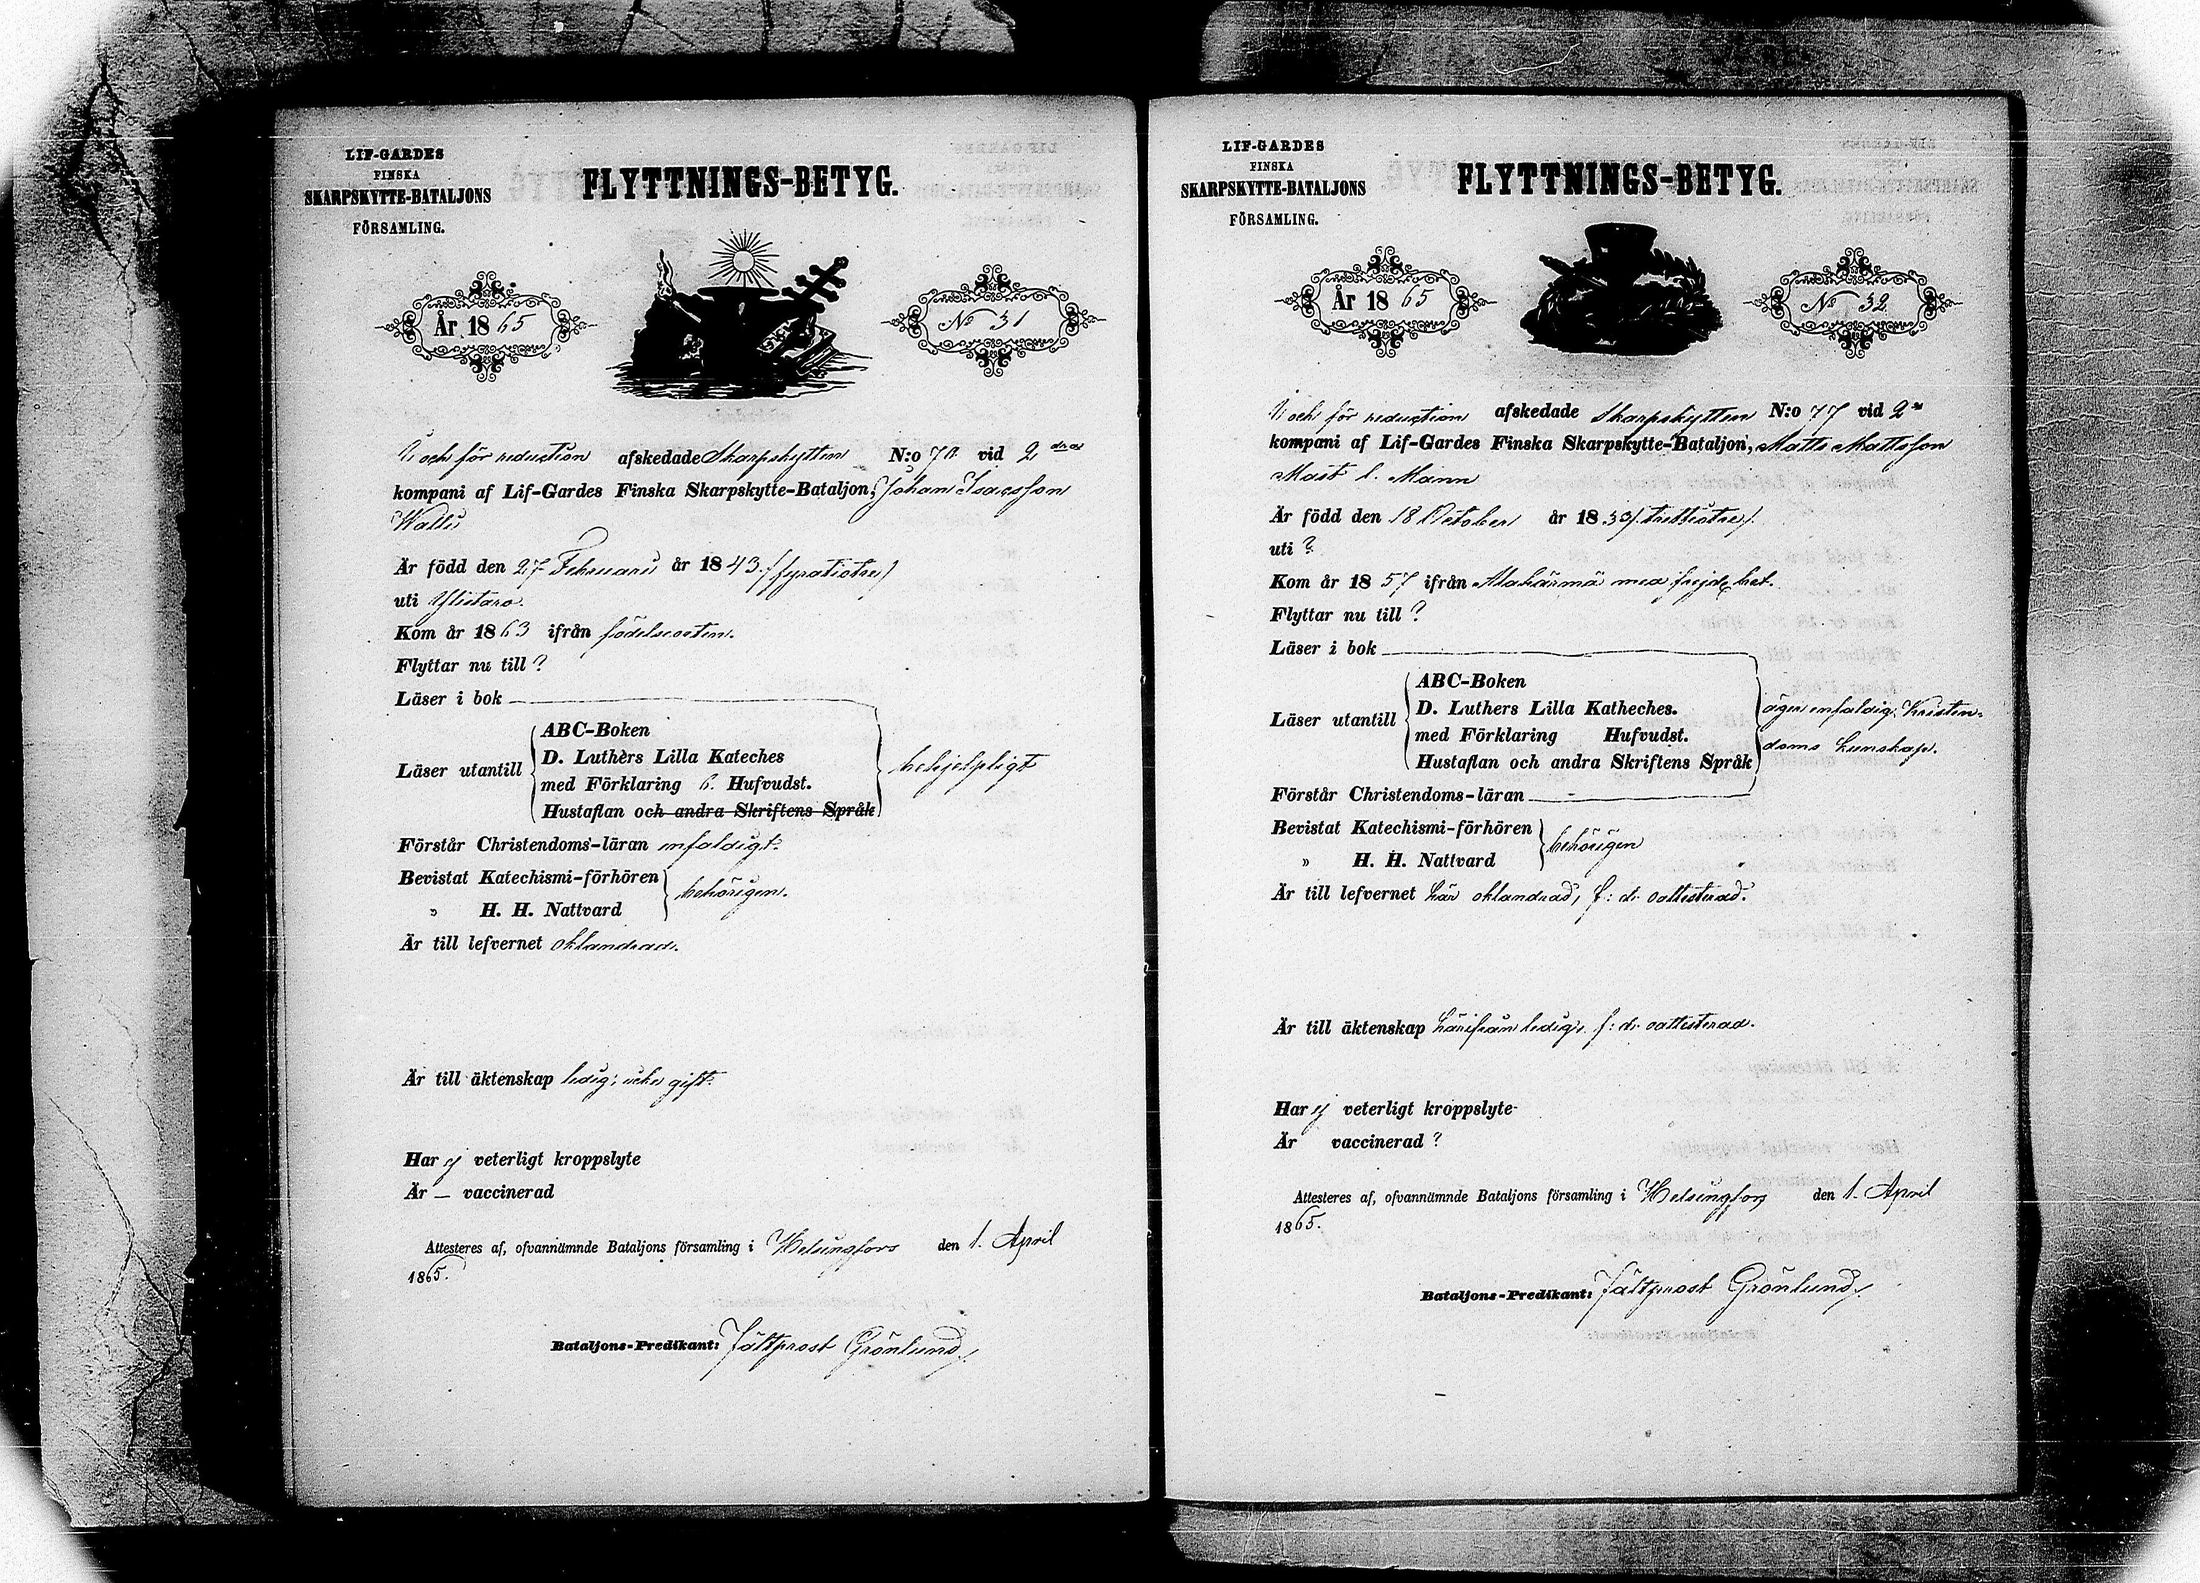 LIF-GARDES
FINSKA
SKARPSKYTTE-BATALJONS
FÖRSAMLING.
FLYTTNINGS-BETYG.
År 1865
No 31
I och för reduction afskedade Skarpskytten N:o 70 vid 2 dra
kompani af Lif-Gardes Finska Skarpskytte-Bataljon, Johan Isacsson
Wallu
Är född den 27 Februari år 1843. /fyratiotre/
uti Ylistaro.
Kom år 1863 ifrån födelseorten.
Flyttar nu till ?
Läser i bok
Läser utantill
ABC-Boken
D. Luthers Lilla Kateches
med Förklaring 6. Hufvudst.
Hustaflan och andra Skriftens Språk
behjelpligt
Förstår Christendoms-läran enfaldigt.
Bevistat Katechismi-förhören
" H. H. Nattvard
behörigen.
Är till lefvernet oklandrad.
Är till äktenskap ledig, icke gift.
Har ej veterligt kroppslyte
Är — vaccinerad
Attesteres af, ofvannämnde Bataljons församling i Helsingfors den 1. April
1865.
Bataljons-Predikant: Fältprost Grönlund/.
LIF-GARDES
FINSKA
SKARPSKYTTE-BATALJONS
FÖRSAMLING.
FLYTTNINGS-BETYG.
År 1865
No 32
I och för reduction afskedade Skarpskytten N:o 77 vid 2
kompani af Lif-Gardes Finska Skarpskytte-Bataljon, Matts Mattsson
Mast l. Mann
Är född den 18 October år 1833/.trettiotre/.
uti ?
Kom år 1857 ifrån Alahärmä med frejdebet.
Flyttar nu till ?
Läser i bok
Läser utantill
ABC-Boken
D. Luthers Lilla Katheches.
med Förklaring Hufvudst.
Hustaflan och andra Skriftens Språk
äger enfaldig Kristen-
doms kunskap.
Förstår Christendoms-läran
Bevistat Katechismi-förhören
" H. H. Nattvard
behörigen
Är till lefvernet här oklandrad, f: d. oattesterad.
Är till äktenskap härifrån ledig, f: d. oattesterad.
Har ej veterligt kroppslyte
Är vaccinerad ?
Attesteres af, ofvannämnde Bataljons församling i Helsingfors den 1. April
1865.
Bataljons-Predikant: Fältprost Grönlund/.